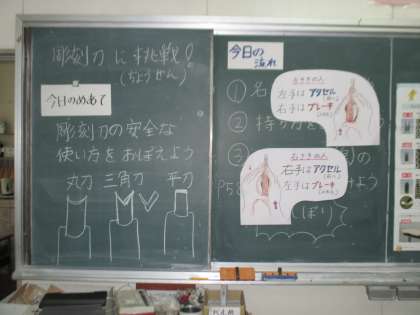 彫刻刀に挑戦!
(ちょうせん)
今日のめあて
彫刻刀の安全な
使い方をおぼえよう
丸刀 三角刀 平刀
今日の
流れ
① 名
② 持ち方を
③
左手はアクセル
右手はブレーキ
右ききの人
右手はアクセル
左手はブレーキ
P58
の
けよう
しぼり